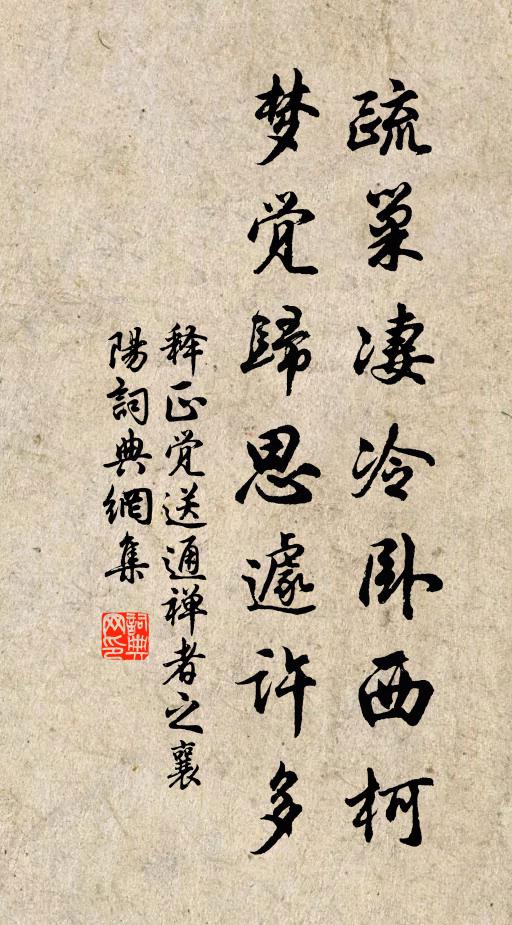 疏巢凄冷卧西柯
梦觉歸思遽许多
释正觉送通禅者之襄
陽詞典網集
詞典
网印